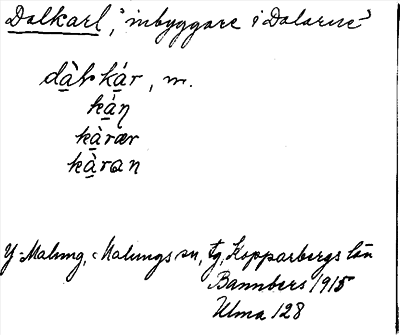 Dalkarl, "inbyggare i Dalarne"
dàl·kár, m.
kán̥
kàrær
kàran
Malung, Malungs sn, Kopparbergs län
Bannbers 1915
Ulma 128